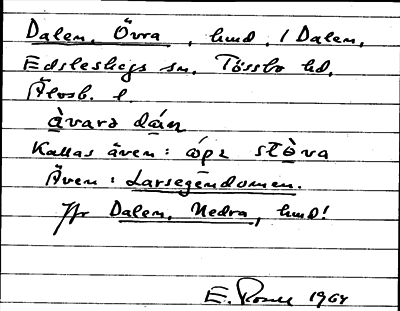 Dalen, Övra, hmd. i Dalen,
Edsleskogs sn, Tössbo hd,
Älvsb. l.
àvarə dán
Kallas även: ópə stòva
Även: Larsegendomen.
Jfr Dalen, Nedra, hmd!
E. 1964